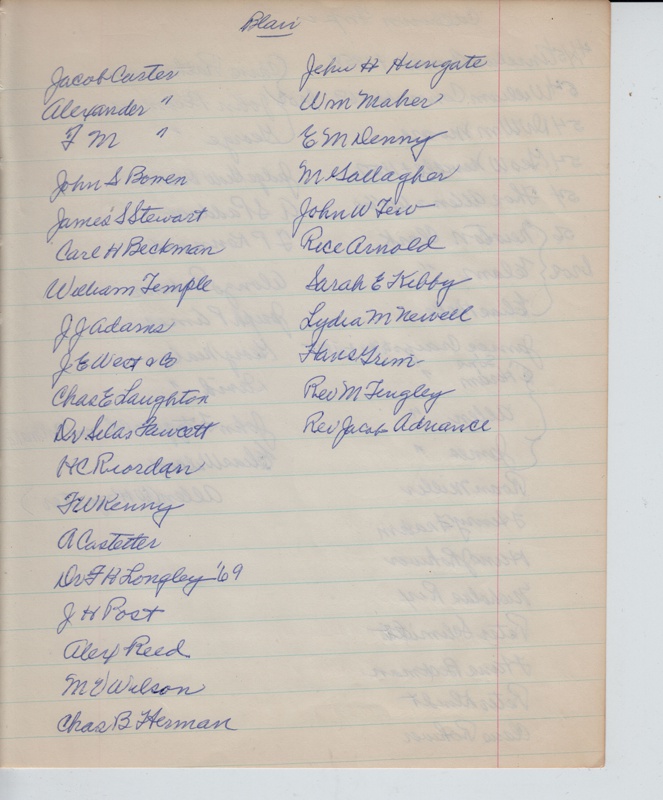 Blair
Jacob Carter
Alexander "
F M "
John S Bowen
James S Stewart
Carl H Beckman
William Temple
J J Adams
J E West & Co
Chas E Laughton
Dr Silas Fawcett
H C Riordan
F W Kenny
A Castetter
Dr F H Longley '69
J H Post
Alex Reed
M V Wilson
Chas B Herman
John H Hungate
Wm Maher
E M Denny
M Gallagher
John W Tew
Rice Arnold
Sarah E Kibby
Lydia M Newell
Hans Grim
Rev M Tingley
Rev Jacob Adriance